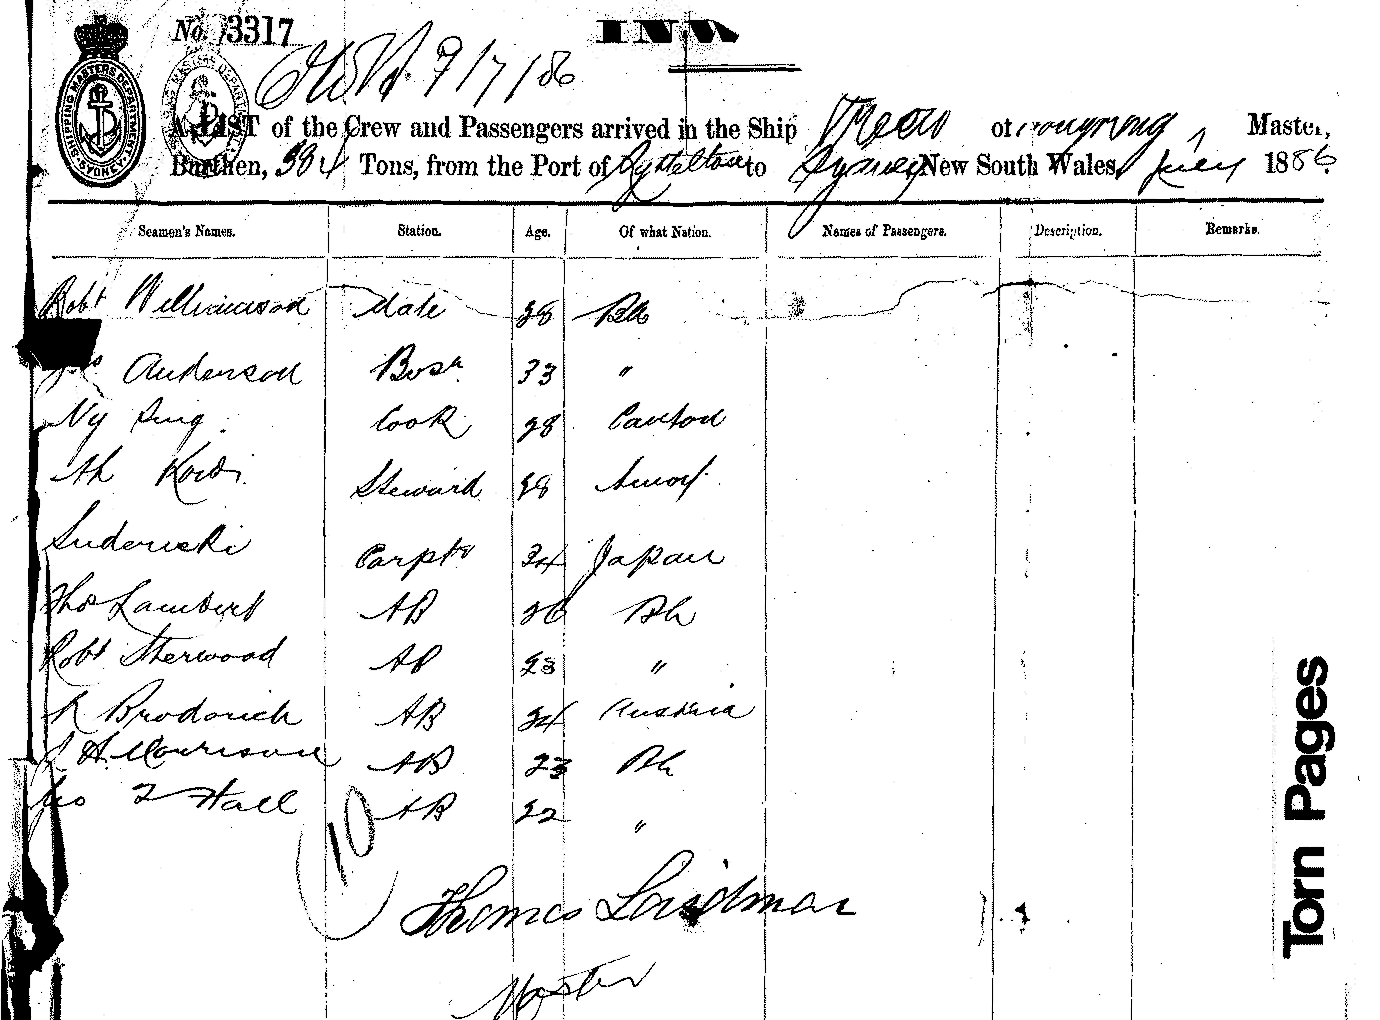 No. 3317 INW
9/7/86
SHIPPING MASTERS DEPARTMENT SYDNEY
A LIST of the Crew and Passengers arrived in the Ship of Master,
Burthen, 384 Tons, from the Port of Lyttelton to Sydney New South Wales, July 1886
Seamen's Names. Station. Age. Of what Nation. Names of Passengers. Description. Remarks.
Robt Williamson Mate 38 Bh
Jas Anderson Bosn 33 "
Ny Sing Cook 28 Canton
Ah Steward 28 Amoy
Carptr 34 Japan
Thos Lambert AB 26 Bh
Robt Sherwood AB 23 "
R Broderich AB 24 Austria
H. Morrison AB 23 Bh
Geo T Hall AB 22 "
10
Thomas Laidman
Master
Torn Pages